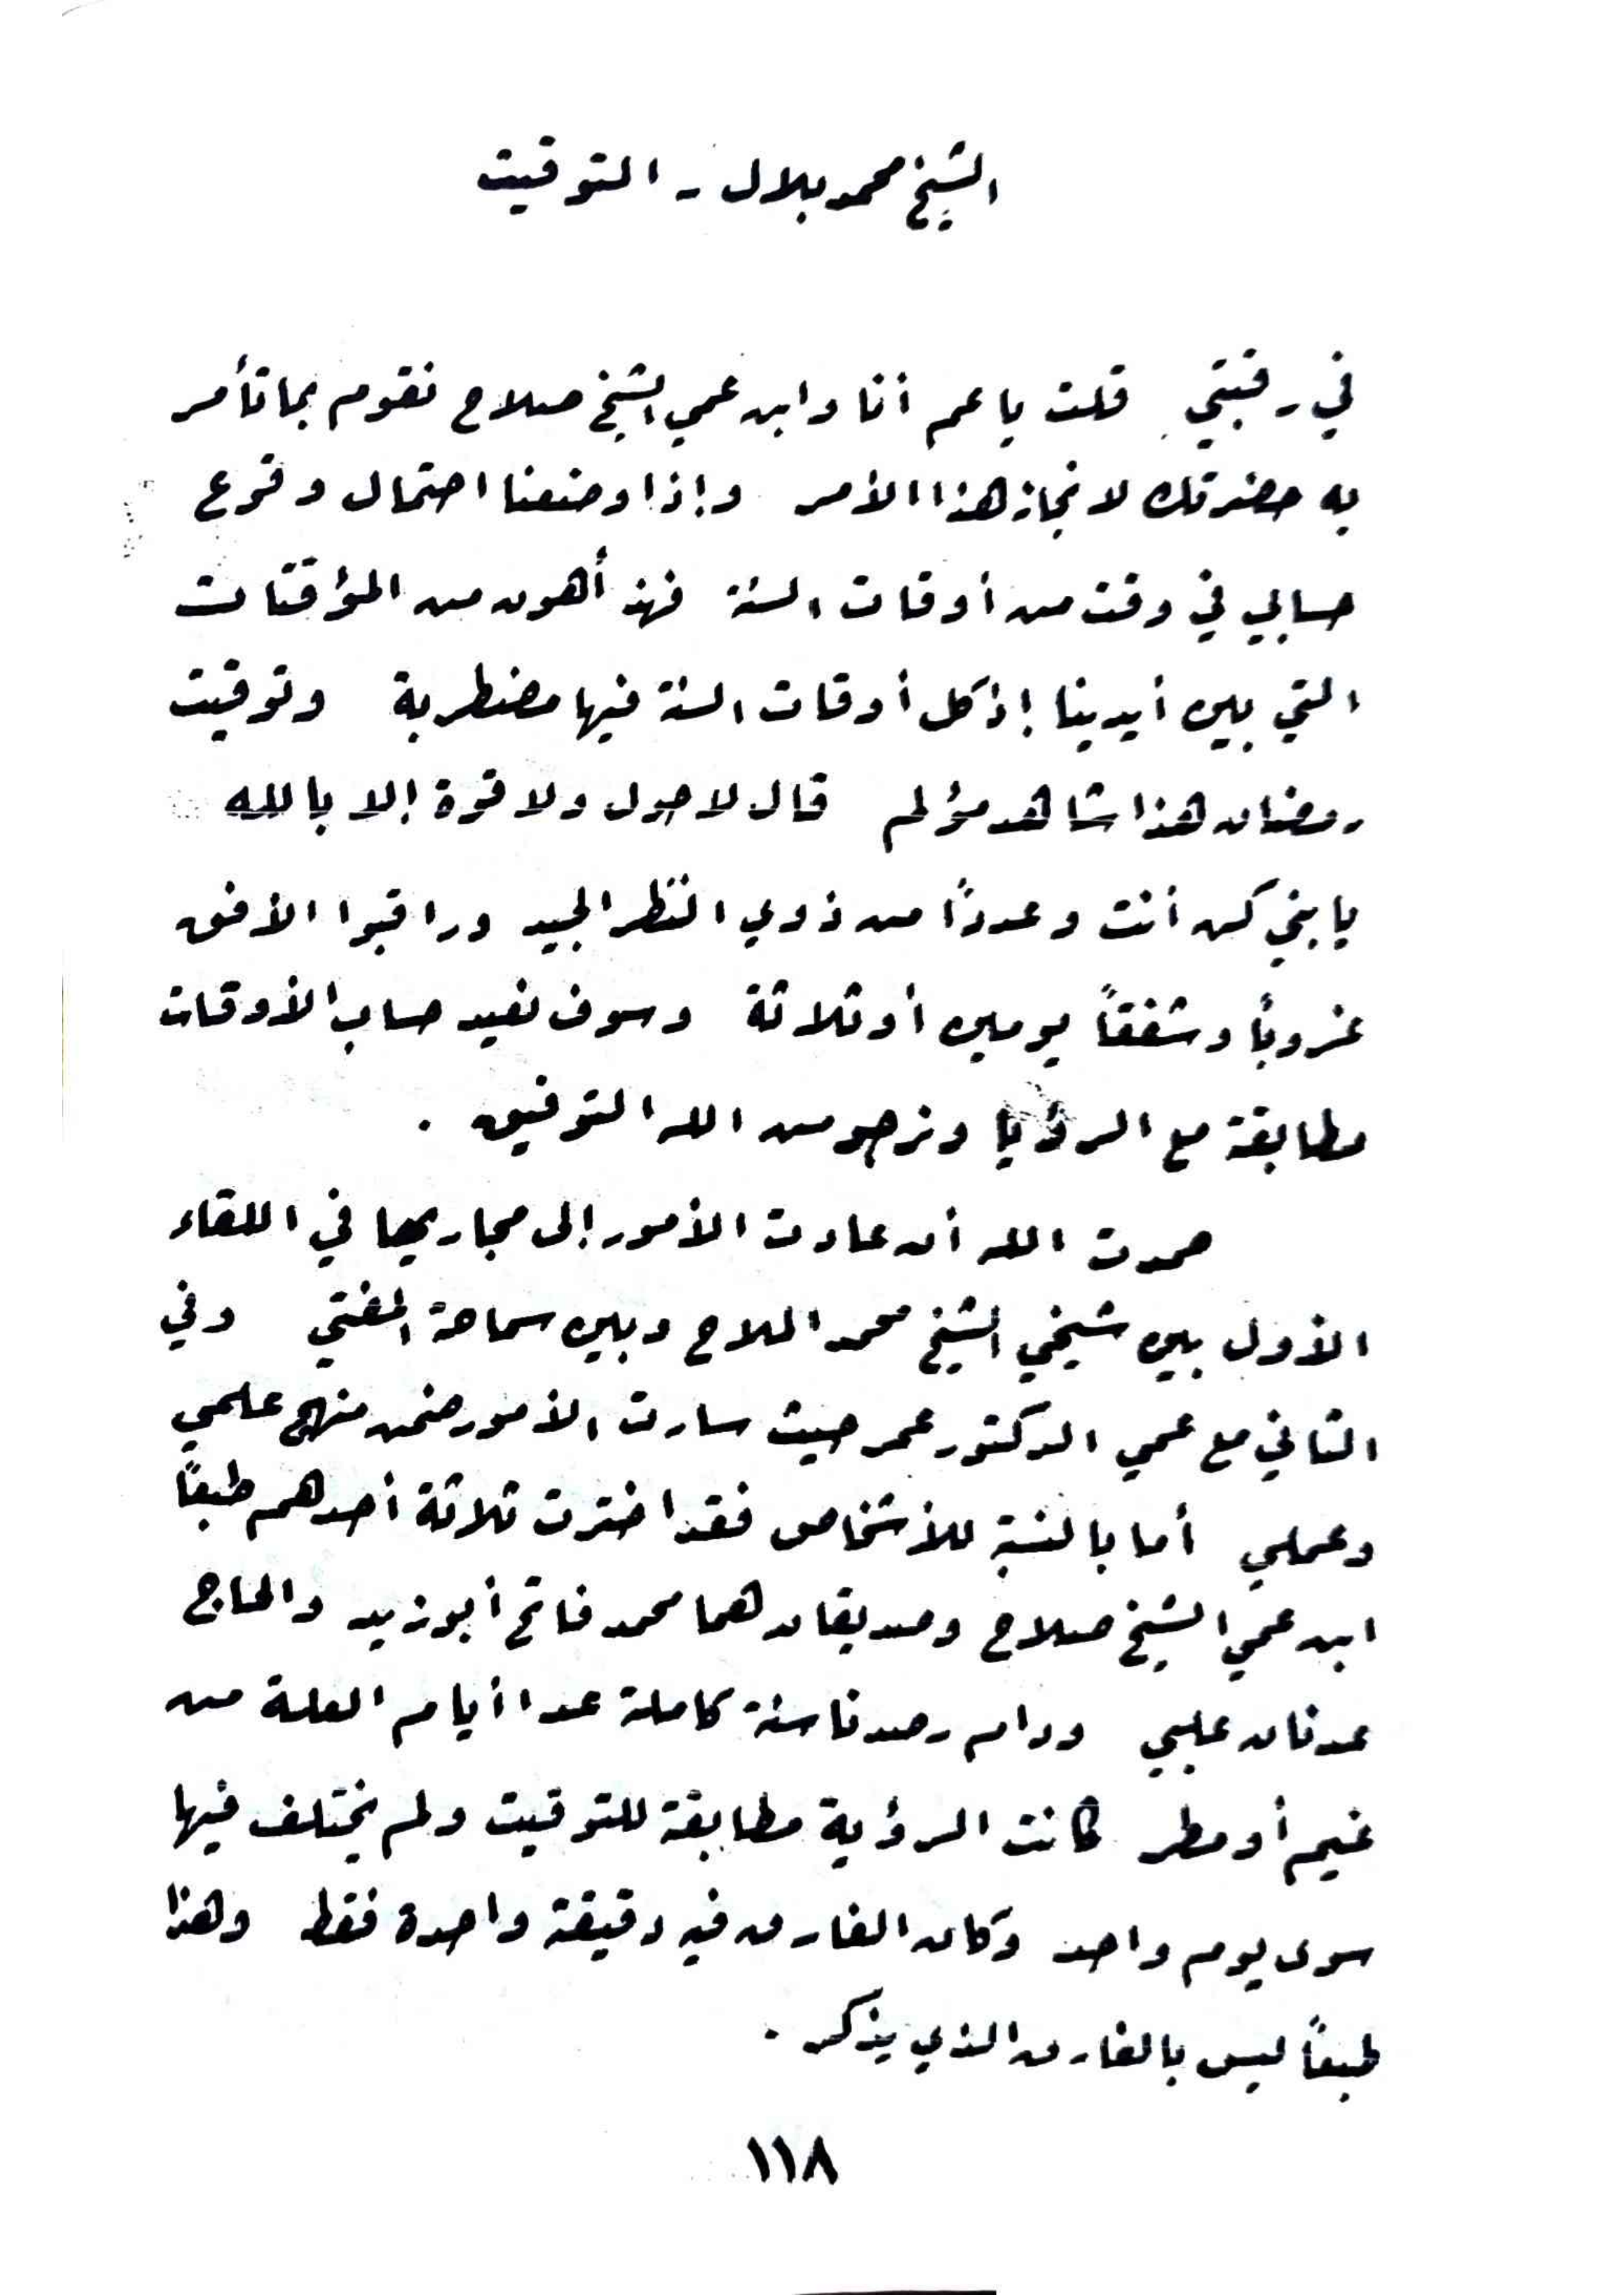 الشيخ محمد بلال - التوقيت
في رقبتي قلت يا عم أنا وابن عمي الشيخ صلاح نقوم بما تأمر
به حضرتك لانجاز هذا الأمر وإذا وضعنا احتمال وقوع
حسابي في وقت من أوقات السنة فهذ أهون من المؤقتات
التي بين أيدينا إذ كل أوقات السنة فيها مضطربة وتوقيت
رمضان هذا شاهد مؤلم قال لا حول ولا قوة إلا بالله
يا بني كن أنت وعدداً من ذوي النظر الجيد وراقبوا الأفق
غروباً وشفقاً يومين أو ثلاثة وسوف نعيد حساب الأوقات
مطابقة مع الرؤيا ونرجو من الله التوفيق .
حمدت الله أن عادت الأمور إلى مجاريها في اللقاء
الأول بين شيخي الشيخ محمد الملاح وبين سماحة المفتي وفي
الثاني مع عمي الدكتور عمر حيث سارت الأمور ضمن منهج علمي
وعملي أما بالنسبة للأشخاص فقد اخترت ثلاثة أحدهم طبعاً
ابن عمي الشيخ صلاح وصديقان هما محمد فاتح أبو زيد والحاج
عدنان علبي ودام رصدنا سنة كاملة عدا أيام العلة من
غيم أو مطر كانت الرؤية مطابقة للتوقيت ولم يختلف فيها
سوى يوم واحد وكان الفارق فيه دقيقة واحدة فقط وهذا
طبعاً ليس بالفارق الذي يذكر .
١١٨